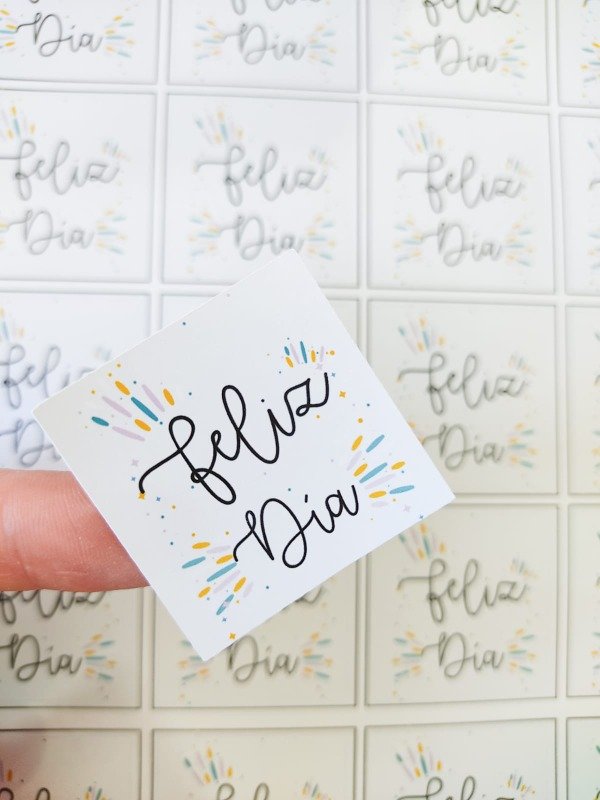 feliz
Día